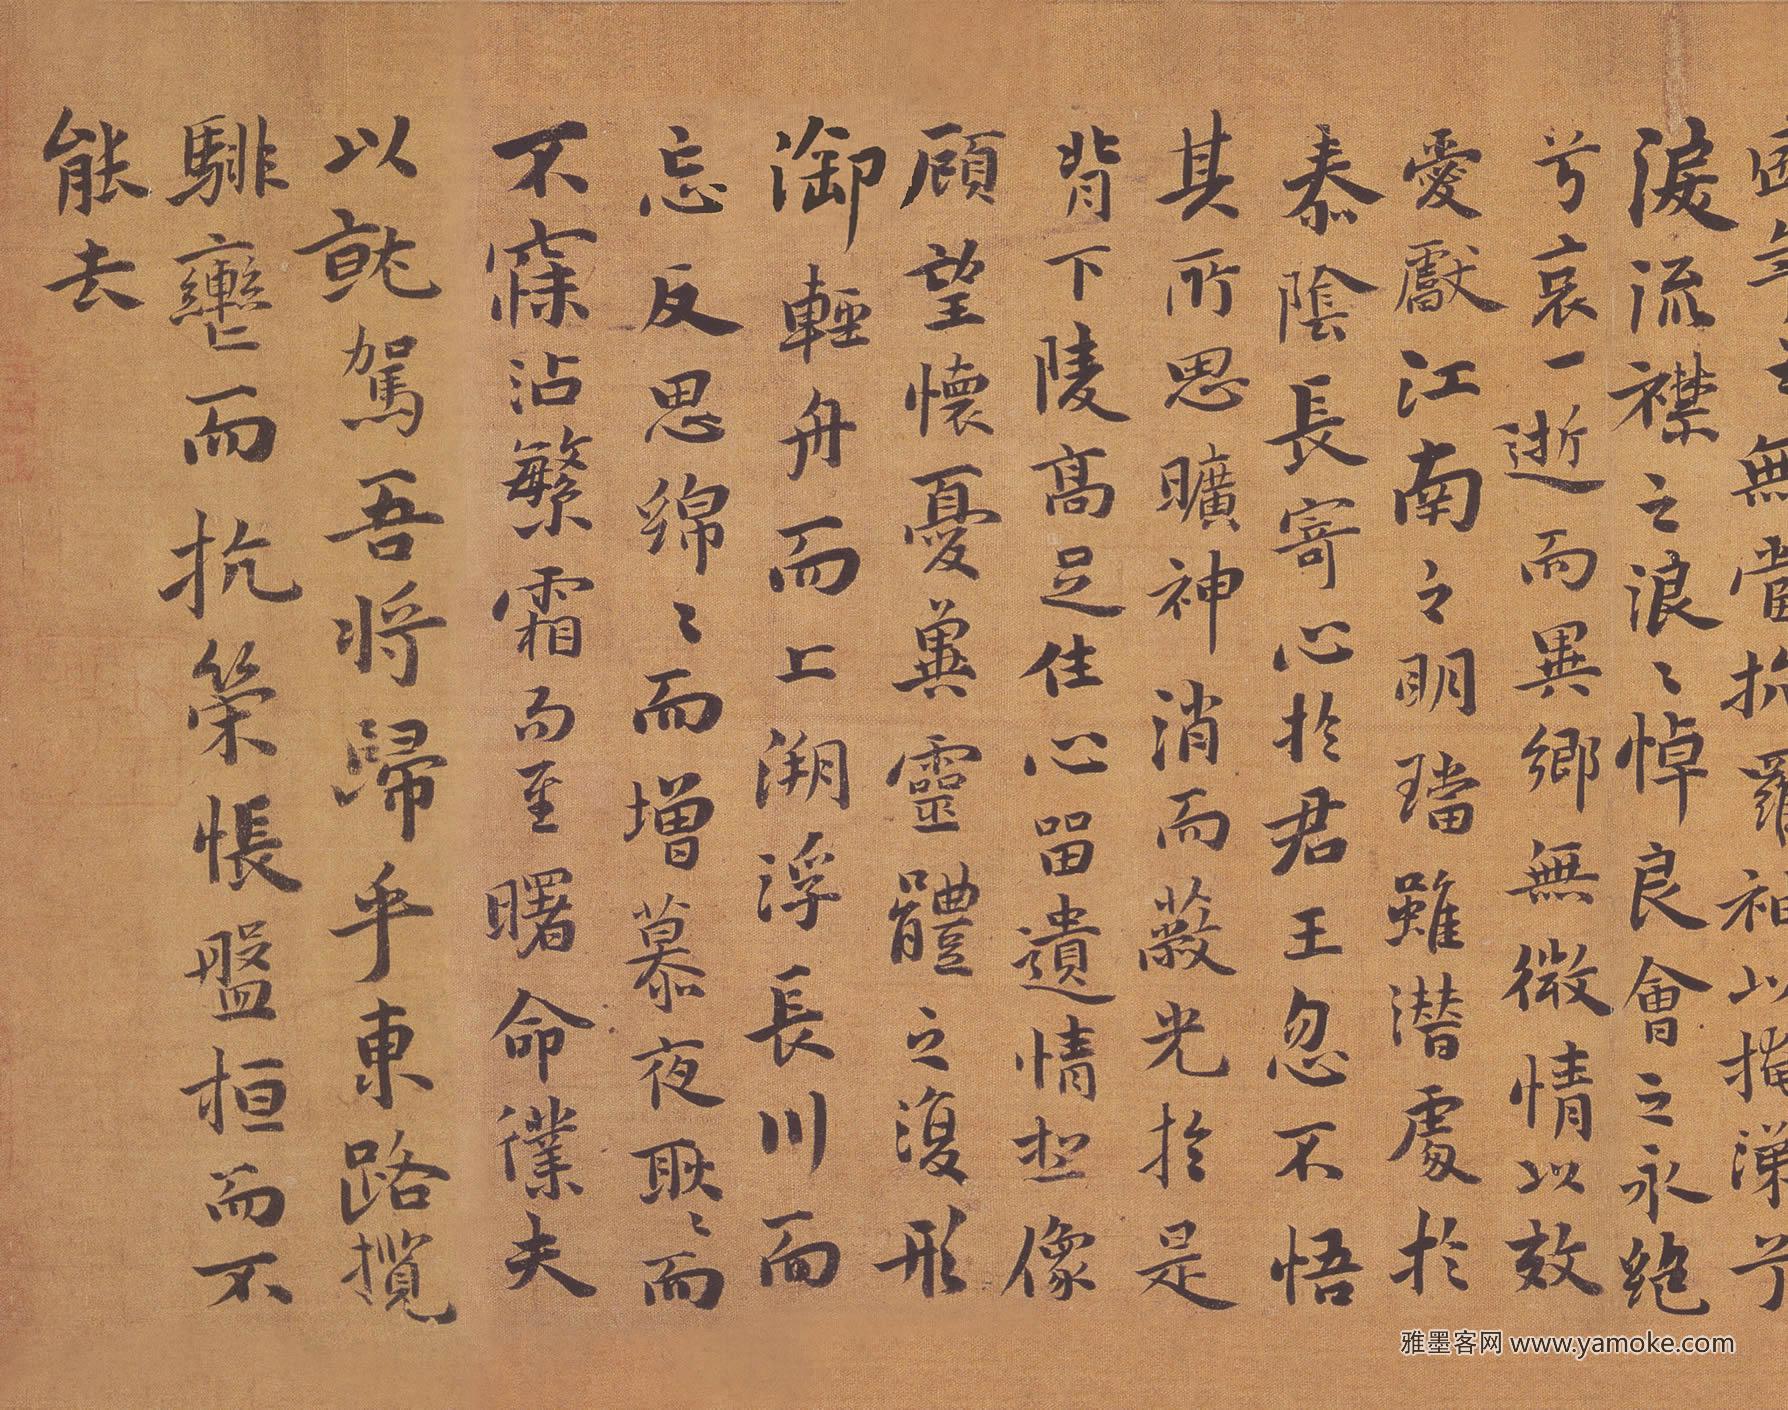 無當抗羅袖以掩涕兮
淚流襟之浪〻悼良會之永絕
兮哀一逝而異鄉無微情以效
愛獻江南之明璫雖潛處於
泰陰長寄心於君王忽不悟
其所思曠神消而蔽光於是
背下陵高足住心留遺情想像
顧望懷憂冀靈體之復形
御輕舟而上溯浮長川而
忘反思綿〻而增慕夜耿〻而
不寐沾繁霜而至曙命僕夫
以就駕吾將歸乎東路攬
騑轡而抗策悵盤桓而不
能去
雅墨客网 www.yamoke.com